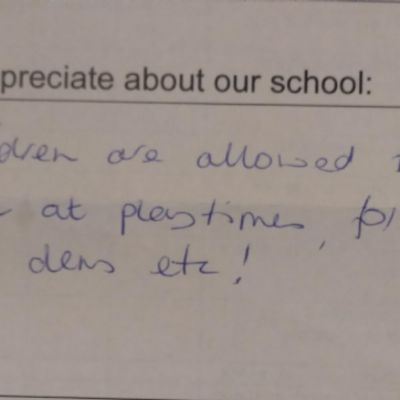 preciate about our school:
dren are allowed
at playtimes,
dens etc!